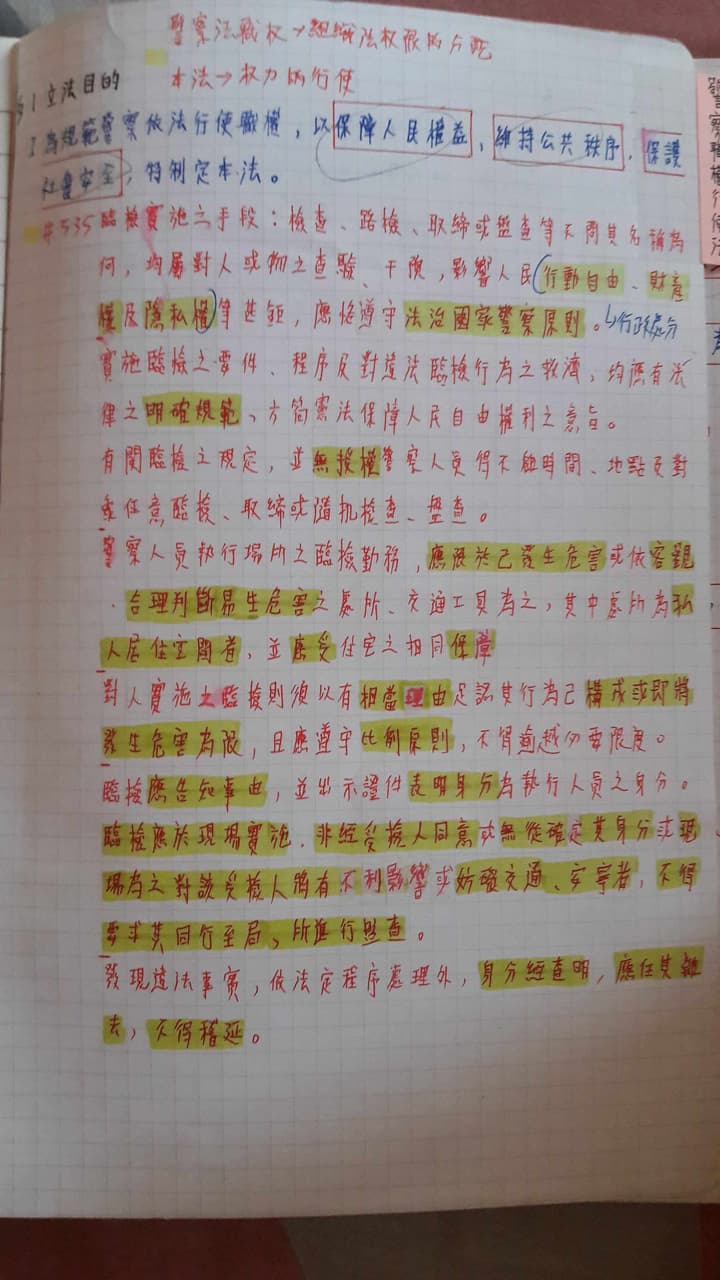 警察法職权→組織法权限的分配
本法→权力的行使
§1立法目的
I為規範警察依法行使職權，以保障人民權益、維持公共秩序，保護
社會安全，特制定本法。
#535臨檢實施之手段：檢查、路檢、取締或盤查等不問其名稱為
何，均屬對人或物之查驗、干預，影響人民(行動自由、財產
權及隱私權)等甚鉅，應恪遵守法治國家警察原則。↳行政處分
實施臨檢之要件、程序及對違法臨檢行為之救濟，均應有法
律之明確規範，方符憲法保障人民自由權利之意旨。
有関臨檢之規定，並無授權警察人員得不顧時間、地點及對
象任意臨檢、取締或隨机檢查、盤查。
警察人員執行場所之臨檢勤務，應限於已發生危害或依客觀
、合理判斷易生危害之處所、交通工具為之，其中處所為私
人居住空間者，並應受住宅之相同保障
對人實施之臨檢則須以有相當理由足認其行為已構成或即將
發生危害為限，且應遵守比例原則，不得逾越必要限度。
臨檢應告知事由，並出示證件表明身分為執行人員之身分。
臨檢應於現場實施，非經受檢人同意或無從確定其身分或現
場為之對該受檢人將有不利影響或妨礙交通、安寧者，不得
要求其同行至局、所進行盤查。
發現違法事實，依法定程序處理外，身分經查明，應任其離
去，不得稽延。
警察職權行使法